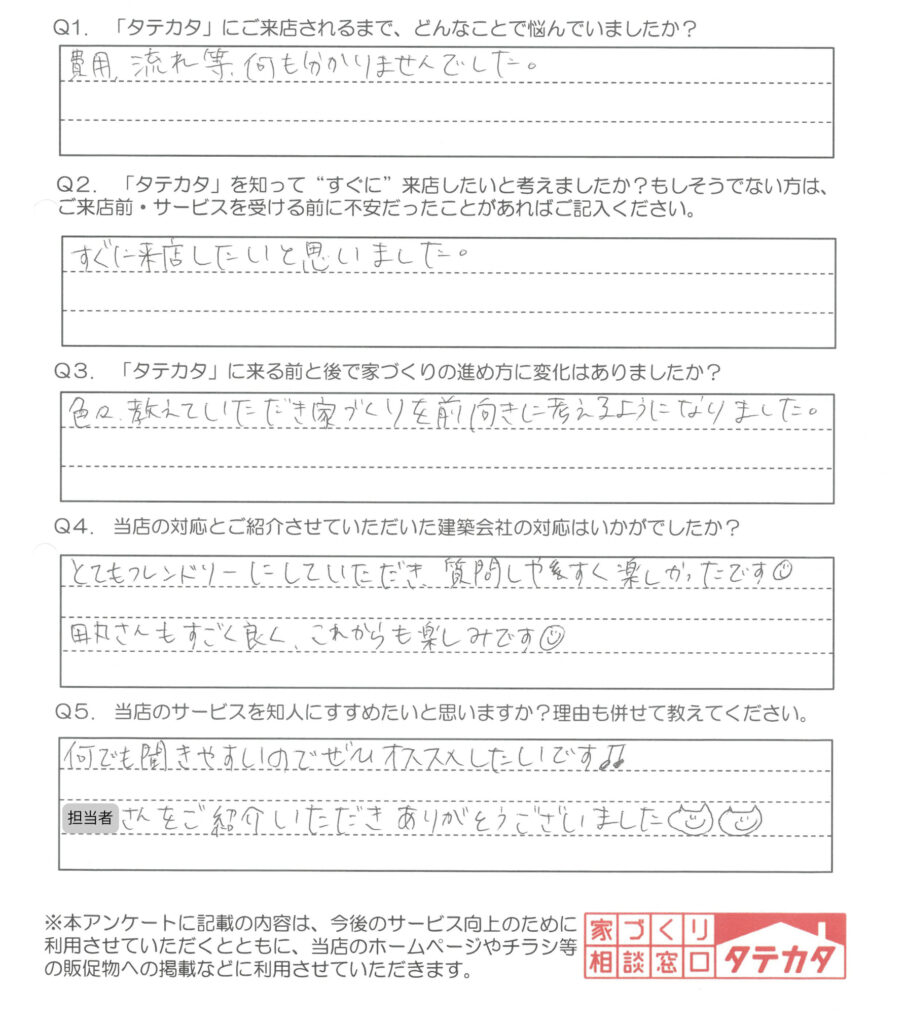 Q1. 「タテカタ」にご来店されるまで、どんなことで悩んでいましたか？
費用、流れ等、何も分かりませんでした。
Q2. 「タテカタ」を知って“すぐに”来店したいと考えましたか？もしそうでない方は、
ご来店前・サービスを受ける前に不安だったことがあればご記入ください。
すぐに来店したいと思いました。
Q3. 「タテカタ」に来る前と後で家づくりの進め方に変化はありましたか？
色々、教えていただき家づくりを前向きに考えるようになりました。
Q4. 当店の対応とご紹介させていただいた建築会社の対応はいかがでしたか？
とてもフレンドリーにしていただき、質問しやすく楽しかったです☺
田丸さんもすごく良く、これからも楽しみです☺
Q5. 当店のサービスを知人にすすめたいと思いますか？理由も併せて教えてください。
何でも聞きやすいのでぜひオススメしたいです♫
担当者さんをご紹介いただきありがとうございました
※本アンケートに記載の内容は、今後のサービス向上のために
利用させていただくとともに、当店のホームページやチラシ等
の販促物への掲載などに利用させていただきます。
家づくり
相談窓口
タテカタ